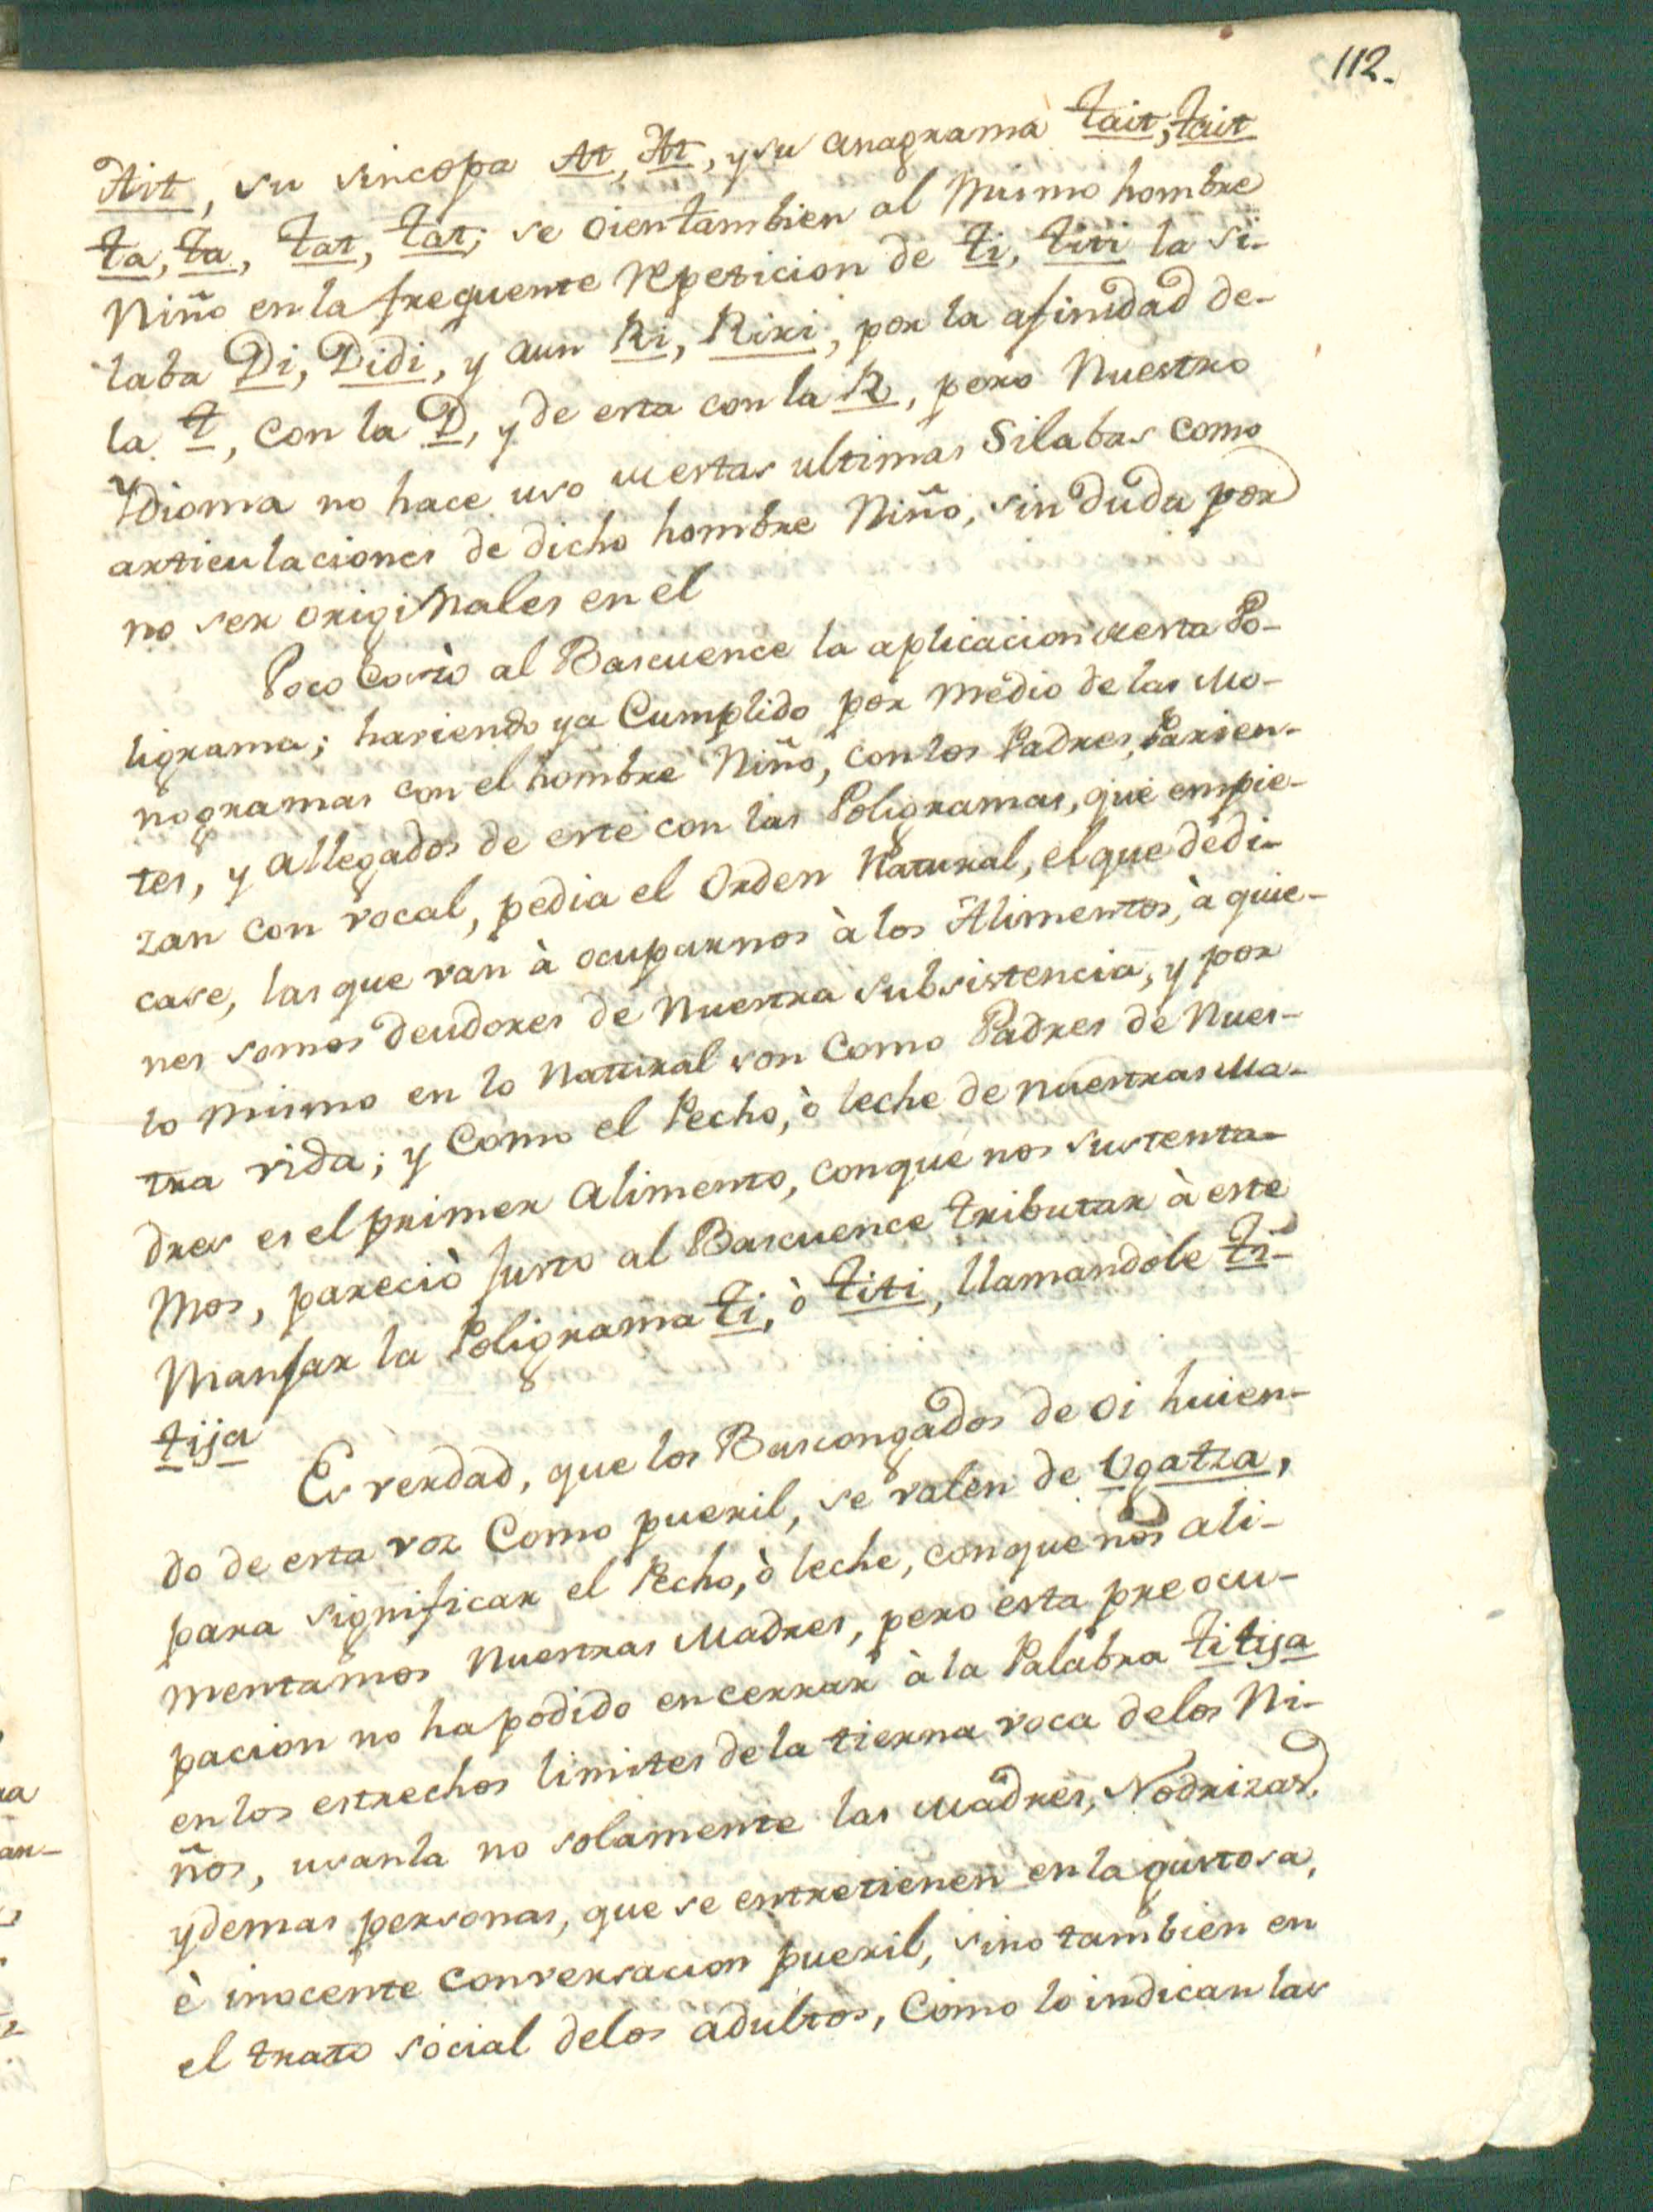 112.
Ait, su sincopa At, At, y su anagrama tait, tait
ta, ta, tat, tat; se oien tambien al Mismo hombre
Niño en la frequente repeticion de ti, titi la si-
laba Di, Didi, y aun Ri, Riri, por la afinidad de-
la t, con la D, y de esta con la R, pero Nuestro
Ydioma no hace uso de estas ultimas Silabas como
articulaciones de dicho hombre Niño, sin duda por
no ser origiNales en el
Poco Costò al Bascuence la aplicacion de esta Po-
ligrama; haviendo ya Cumplido por medio de las Mo-
nogramas con el hombre Niño, con los Padres, Parien-
tes, y allegados de este con las Poligramas, que empie-
zan con vocal, pedia el Orden Natural, el que dedi-
case, las que van à ocuparnos à los Alimentos, à quie-
nes somos deudores de Nuestra subsistencia, y por
lo mismo en lo Natural son Como Padres de Nues-
tra vida; y Como el Pecho, ò leche de nuestras Ma-
dres es el primer alimento, conque nos sustenta-
Mos, pareciò justo al Bascuence tributar à este
Manjar la Poligrama ti, ò titi, llamandole ti-
tija
Es verdad, que los Bascongados de oi huien-
do de esta voz Como pueril, se valen de Ugatza,
para significar el Pecho, ò leche, conque nos ali-
mentamos Nuestras Madres, pero esta preocu-
pacion no ha podido encerrar à la Palabra titija
en los estrechos limites de la tierna voca delos Ni-
ños, usanla no solamente las Madres, Nodrizas,
y demas personas, que se entretienen en la gustosa,
è inocente conversacion pueril, sino tambien en
el trato social delos adultos, Como lo indican las